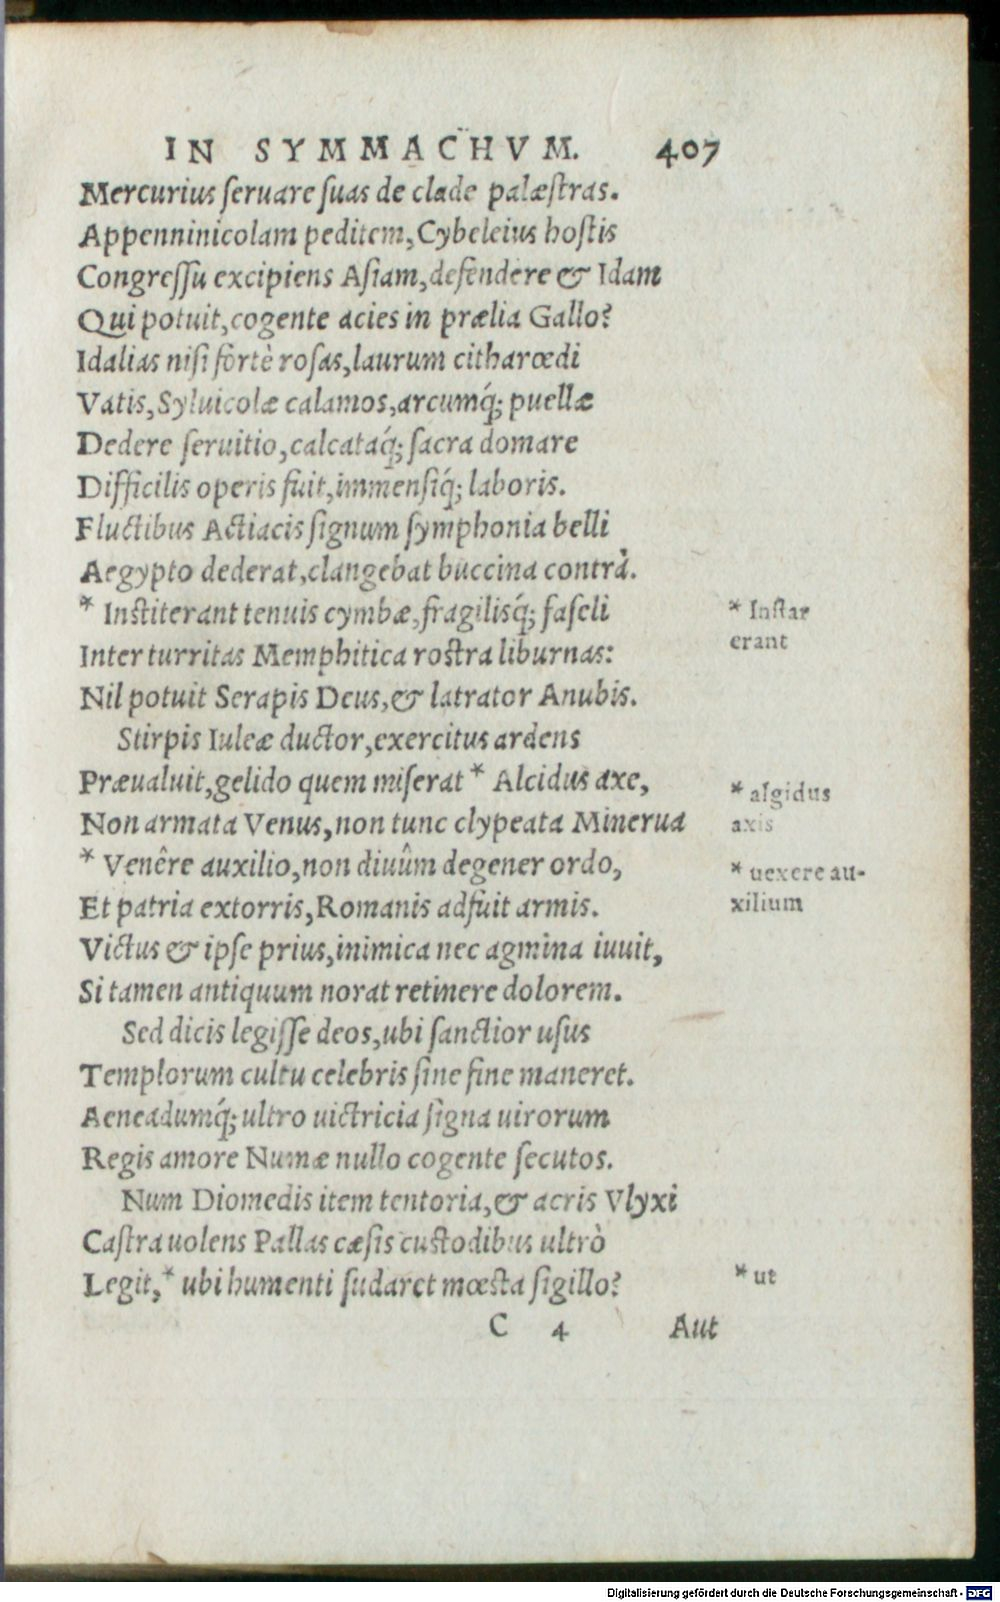 IN SYMMACHVM. 407
Mercurius ſeruare ſuas de clade palæſtras.
Appenninicolam peditem, Cybeleius hoſtis
Congreſſu excipiens Aſiam, defendere & Idam
Qui potuit, cogente acies in prælia Gallo?
Idalias niſi fortè roſas, laurum citharœdi
Vatis, Syluicolæ calamos, arcumq́; puellæ
Dedere ſeruitio, calcataq́; ſacra domare
Difficilis operis fuit, immenſiq́; laboris.
Fluctibus Actiacis ſignum ſymphonia belli
Aegypto dederat, clangebat buccina contrà.
* Inſtiterant tenuis cymbæ, fragilisq́; faſeli
* Inſtar
erant
Inter turritas Memphitica roſtra liburnas:
Nil potuit Serapis Deus, & latrator Anubis.
Stirpis Iuleæ ductor, exercitus ardens
Præualuit, gelido quem miſerat * Alcidus axe,
* algidus
axis
Non armata Venus, non tunc clypeata Minerua
* Venêre auxilio, non diuûm degener ordo,
* uexere au-
xilium
Et patria extorris, Romanis adfuit armis.
Victus & ipſe prius, inimica nec agmina iuuit,
Si tamen antiquum norat retinere dolorem.
Sed dicis legiſſe deos, ubi ſanctior uſus
Templorum cultu celebris ſine fine maneret.
Aeneadumq́; ultro uictricia ſigna uirorum
Regis amore Numæ nullo cogente ſecutos.
Num Diomedis item tentoria, & acris Vlyxi
Caſtra uolens Pallas cæſis cuſtodibus ultrò
Legit, * ubi humenti ſudaret mœſta ſigillo?
* ut
C 4 Aut
Digitalisierung gefördert durch die Deutsche Forschungsgemeinschaft - DFG